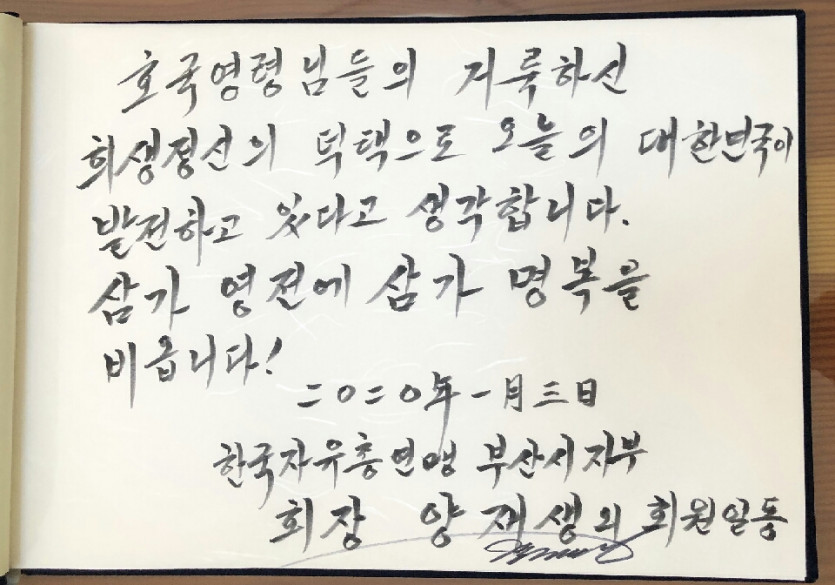 호국영령님들의 거룩하신
희생정신의 덕택으로 오늘의 대한민국이
발전하고 있다고 생각합니다.
삼가 영전에 삼가 명복을
비옵니다!
二〇二〇年 一月 三日
한국자유총연맹 부산시지부
회장 양재생외 회원일동